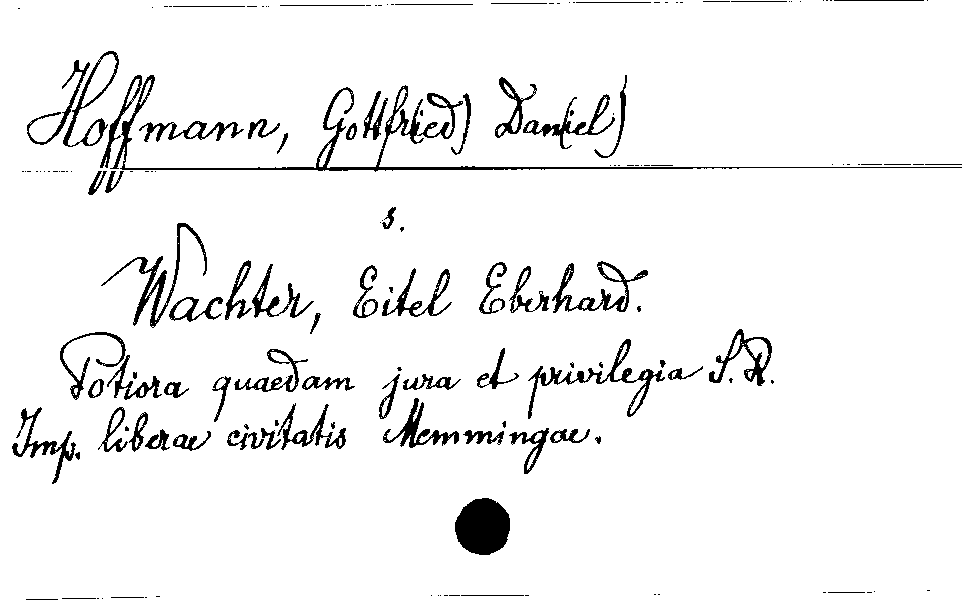 Hoffmann, Gottfr(ied) Dan(iel)
s.
Wachter, Eitel Eberhard.
Potiora quaedam jura et privilegia S. R.
Imp. liberae civitatis Memmingae.